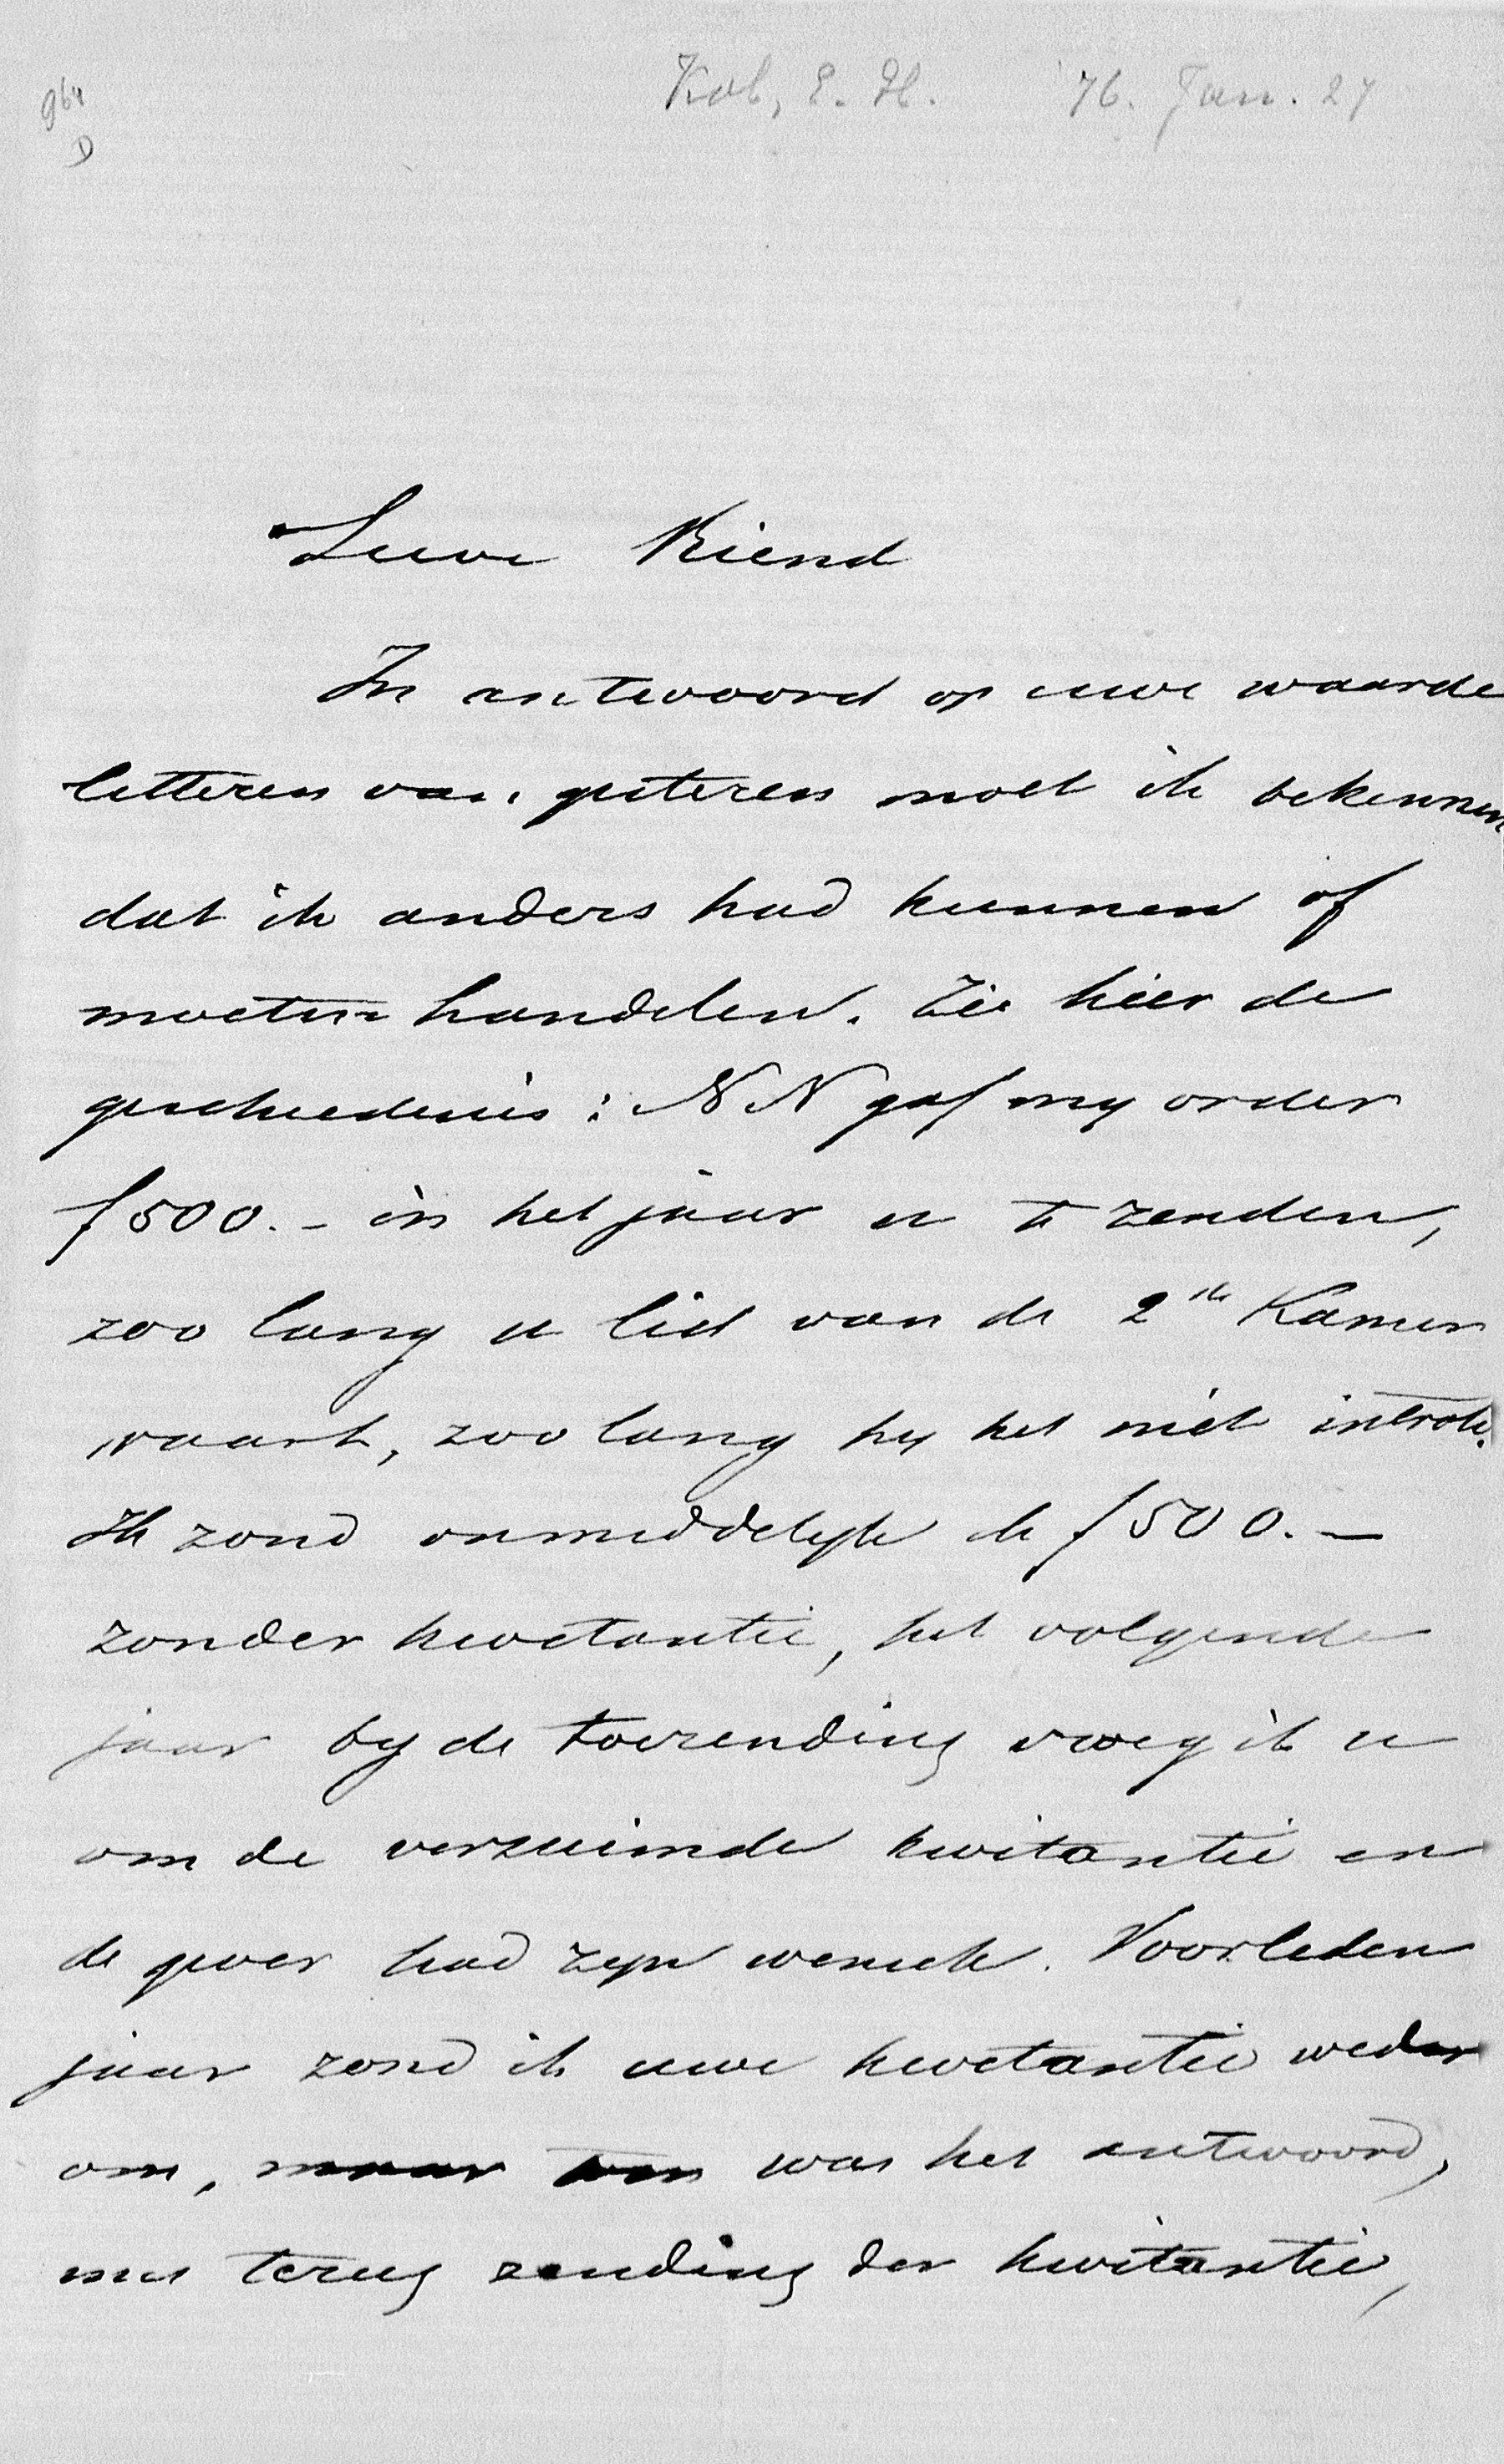 Kol, E. H. '76. Jan. 27
964
D
Lieve Vriend
In antwoord op uwe waarde
letteren van gisteren moet ik bekennen
dat ik anders had kunnen of
moeten handelen. Zie hier de
geschiedenis: NN gaf my order
f 500.- in het jaar u te zenden,
zoo lang u lid van de 2de Kamer
waart, zoo lang hy het niet introk.
Ik zond onmiddelyk de f 500.—
zonder kwitantie, het volgende
jaar by de toezending vroeg ik u
om de verzuimde kwitantie en
de gever had zyn wensch. Voorleden
jaar zond ik uwe kwitantie weder
om, maar was het antwoord,
met terug zending der kwitantie,